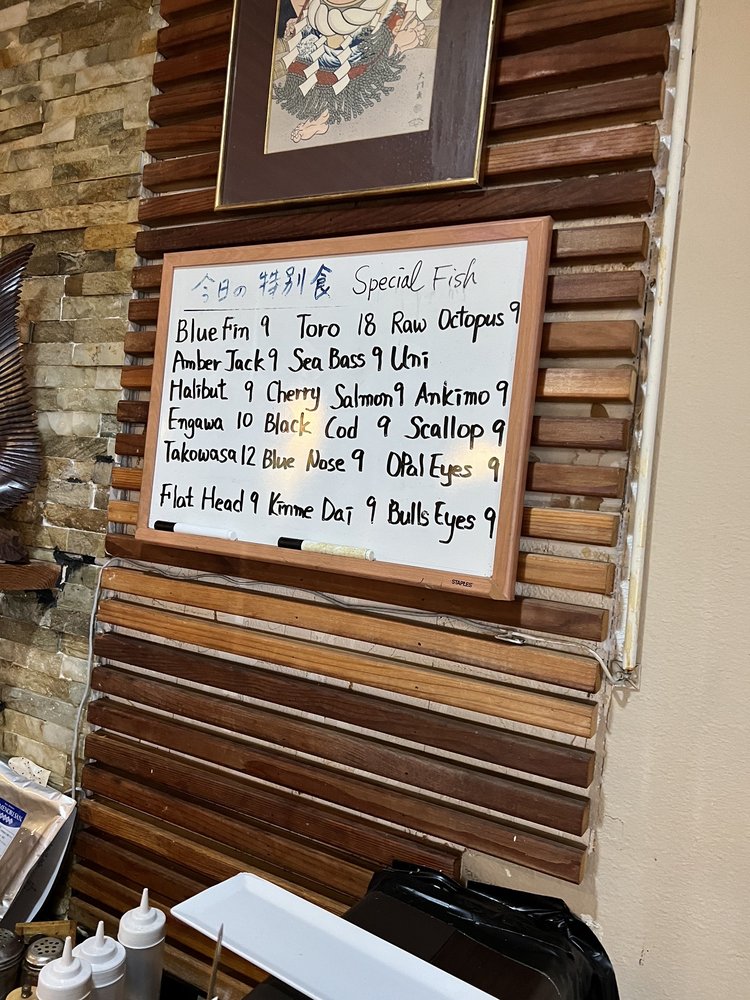 今日の 特別食 Special Fish
Blue Fin 9 Toro 18 Raw Octopus 9
Amber Jack 9 Sea Bass 9 Uni
Halibut 9 Cherry Salmon 9 Ankimo 9
Engawa 10 Black Cod 9 Scallop 9
Takowasa 12 Blue Nose 9 Opal Eyes 9
Flat Head 9 Kinme Dai 9 Bulls Eyes 9
STAPLES